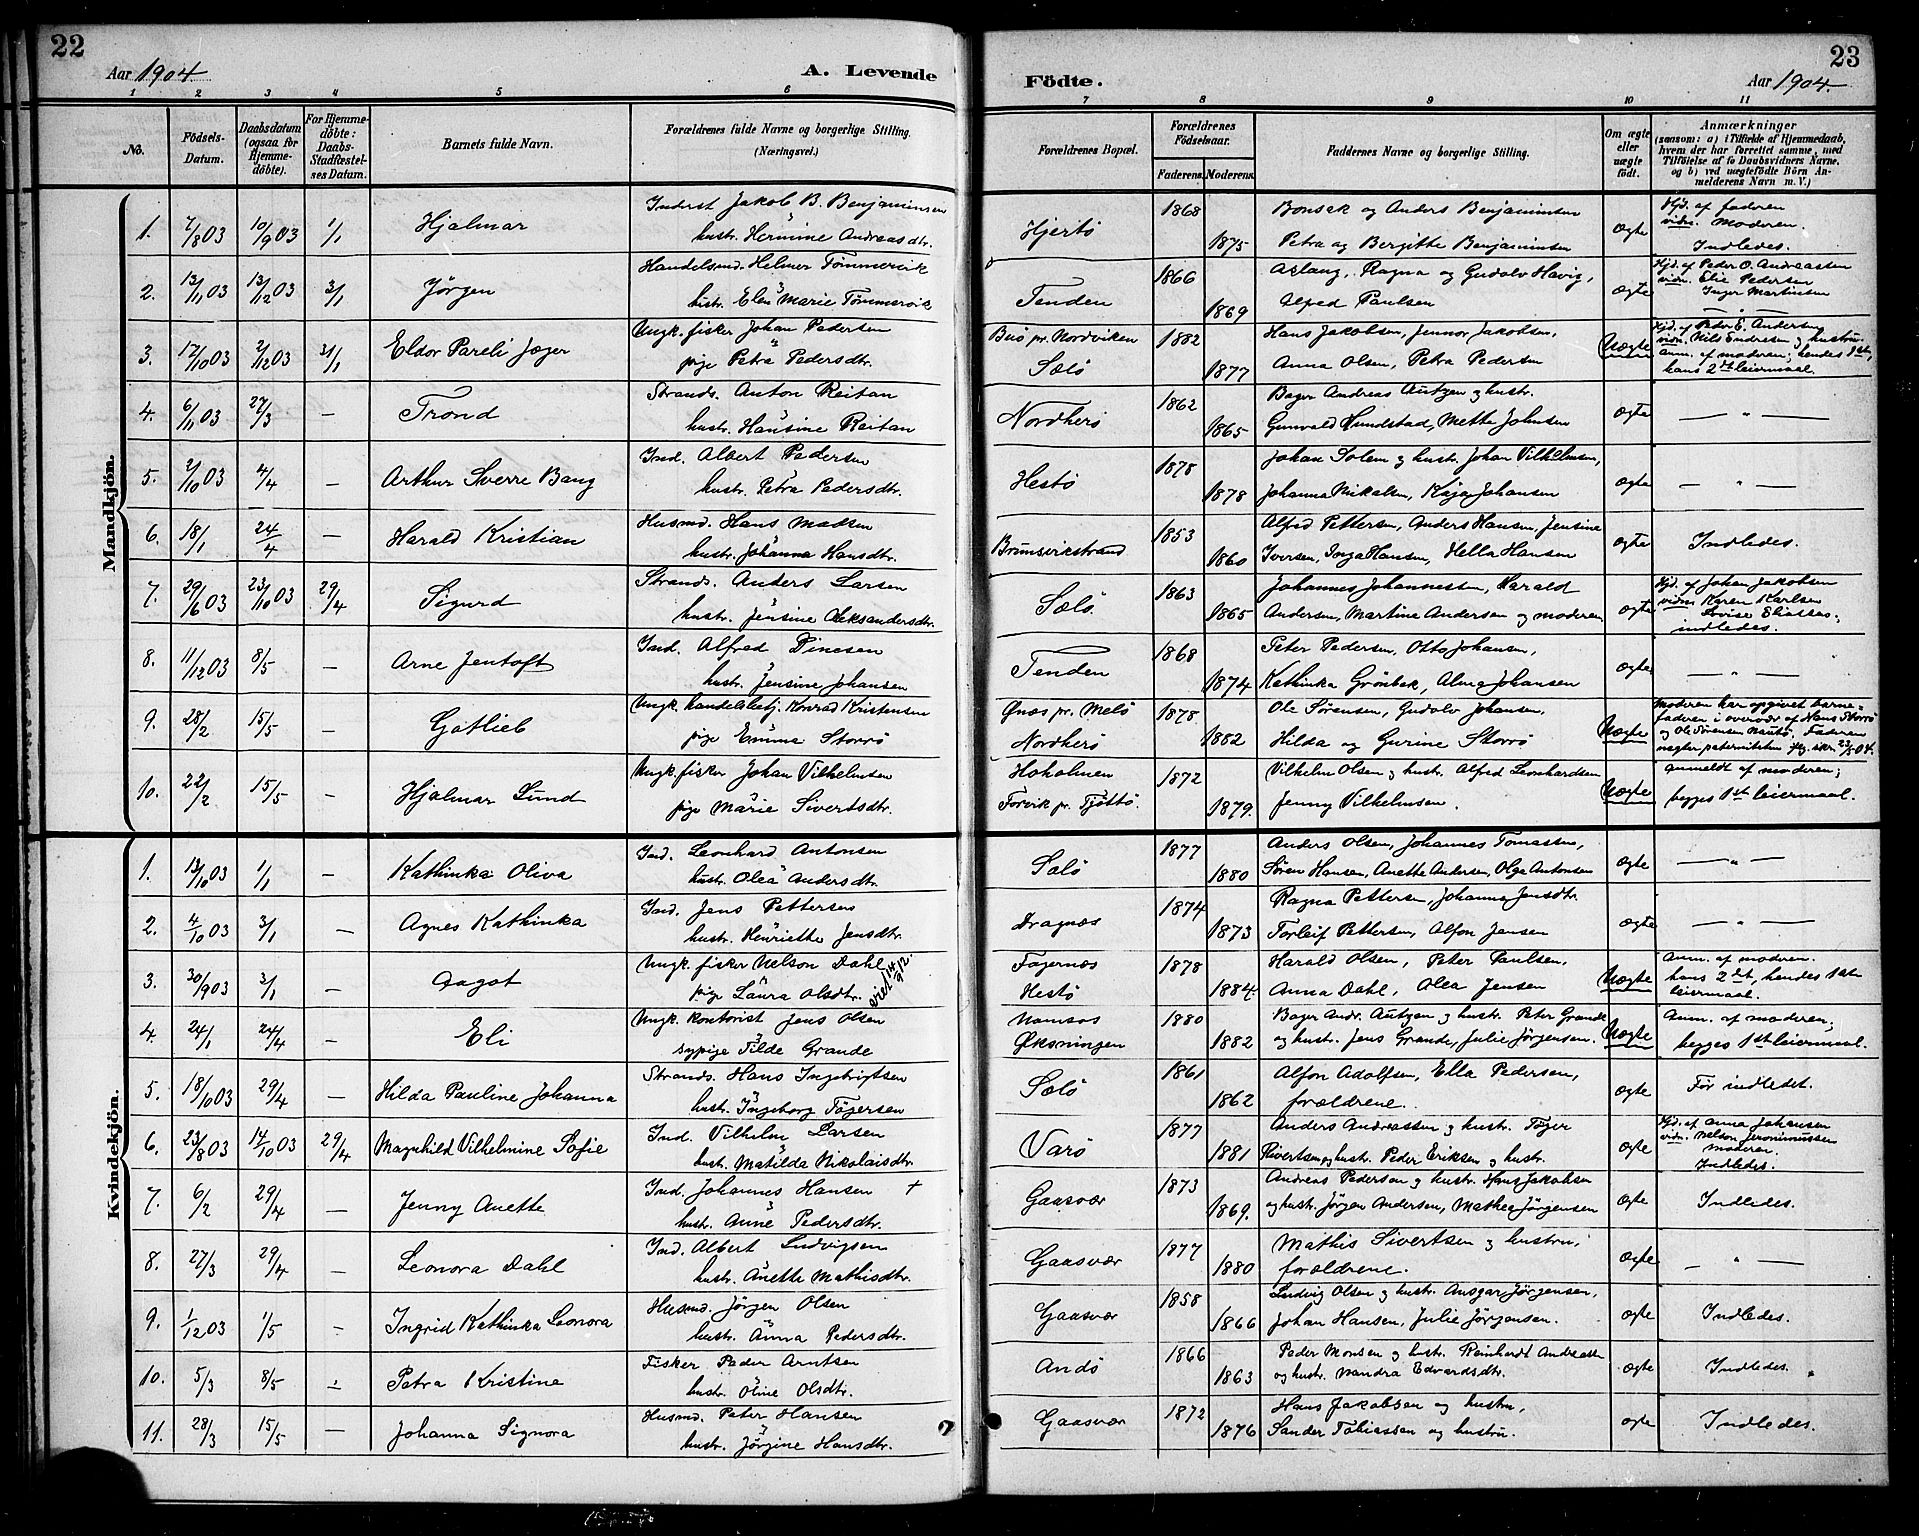 22
Aar 1904.
A. Levende
1 2 3 4 5 6
No.
Födsels-Datum.
Daabsdatum (ogsaa for Hjemmedöbte).
For Hjemmedöbte: Daabs-Stadfæstelses Datum.
Barnets fulde Navn.
Forældrenes fulde Navne og borgerlige Stilling.
(Næringsvei.)
Mandkjön.
1. 7/8 03 10/9 03 1/1 Hjalmar Inderst Jakob B. Benjaminsen
hustr. Hermine Andreasdtr.
2. 13/11 03 13/12 03 3/1 Jörgen Handelsmd. Helmer Tömmervik
hustr. Elen Marie Tömmervik
3. 12/10 03 2/12 03 31/1 Eldor Pareli Jæger Ungk. fisker Johan Pedersen
pige Petra Pedersdtr.
4. 6/11 03 27/3 — Trond Strands. Anton Reitan
hustr. Hansine Reitan
5. 2/10 03 4/4 — Arthur Sverre Bang Ind. Albert Pedersen
hustr. Petra Pedersdtr.
6. 18/1 24/4 — Harald Kristian Husmd. Hans Madsen
hustr. Johanna Hansdtr.
7. 29/6 03 23/10 03 29/4 Sigurd Strands. Anders Larsen
hustr. Jensine Aleksandersdtr.
8. 11/12 03 8/5 — Arne Jentoft Ind. Alfred Dinesen
hustr. Jensine Johansen
9. 28/2 15/5 — Gotlieb Ungk. handelsbetj. Konrad Kristensen
pige Emma Storrö
10. 22/2 15/5 — Hjalmar Lund Ungk. fisker Johan Vilhelmsen
pige Marie Sivertsdtr.
Kvindekjön.
1. 13/10 03 1/1 — Kathinka Oliva Ind. Leonhard Antonsen
hustr. Olea Andersdtr.
2. 4/10 03 3/1 — Agnes Kathinka Ind. Jens Pettersen
hustr. Henriette Jensdtr.
3. 30/9 03 3/1 — Dagot Ungk. fisker Nelson Dahl
pige Laura Olsdtr. viet 14/9 12.
4. 24/1 24/4 — Eli Ungk. kontorist Jens Olsen
sypige Tilde Grande
5. 18/10 03 29/4 — Hilda Pauline Johanna Strands. Hans Ingebrigtsen
hustr. Ingeborg Tögersen
6. 23/8 03 14/10 03 29/4 Magnhild Vilhelmine Sofie Ind. Vilhelm Larsen
hustr. Matilda Nikolaisdtr.
7. 6/2 29/4 — Jenny Anette Ind. Johannes Hansen +
hustr. Anne Pedersdtr.
8. 27/3 29/4 — Leonora Dahl Ind. Albert Ludvigsen
hustr. Anette Mathisdtr.
9. 1/12 03 1/5 — Ingrid Kathinka Leonora Husmd. Jörgen Olsen
hustr. Anna Pedersdtr.
10. 5/3 8/5 — Petra Kristine Fisker Peder Arntsen
hustr. Oline Olsdtr.
11. 28/3 15/5 — Johanna Signora Husmd. Peter Hansen
hustr. Jörgine Hansdtr.
23
Födte.
Aar 1904.
7 8 9 10 11
Forældrenes Bopæl.
Forældrenes Födselsaar.
Faderens. Moderens.
Faddernes Navne og borgerlige Stilling.
Om ægte eller uægte födt.
Anmærkninger
(saasom: a) i Tilfælde af Hjemmedaab,
hvem der har forrettet samme, med
Tilföielse af to Daabsvidners Navne,
og b) ved uægtefödte Börn Anmelderens Navn m. V.)
Hjertö 1868 Bonsak og Anders Benjaminsen Hjd. af faderen
1875 Petra og Bergitte Benjaminsen ægte vidn. Moderen.
Indledes.
Tenden 1866 Aslaug, Ragna og Gudolv Havig, Hjd. af Peder O. Andreassen
1869 Alfred Paulsen ægte vidn. Elie Pedersen
Inger Martinsen
Buö pr. Nordviken 1882 Hans Jakobsen, Jennor Jakobsen, Hjd. af Peder E. Andersen
Sælö 1877 Anna Olsen, Petra Pedersen Uægte vidn. Nils Endresen og hustru.
anm. af moderen; hendes 1ste,
hans 2det leiermaal.
Nordherö 1862 Bager Andreas Autzen og hustr.
1865 Gunvald Hundstad, Mette Johnsen ægte — " —
Hestö 1878 Johan Solem og hustr. Johan Vilhelmsen,
1878 Johanna Nikalsen, Kaja Johansen ægte — " —
Brunsvikstrand 1853 Alfred Pettersen, Anders Hansen, Jensine
1860 Iversen, Inga Hansen, Hella Hansen ægte Indledes.
Sælö. 1863 Johannes Johannessen, Harald Hjd. af Johan Jakobsen
1865 Andersen, Martine Andersen og moderen ægte vidn. Karen Karlsen
Lovise Eliassen,
indledes.
Tenden 1868 Peter Pedersen, Otto Johansen,
1874 Kathinka Grönbek, Alma Johansen ægte — " —
Ønæs pr. Melö 1878 Ole Sörensen, Gudolv Johansen, Moderen har opgivet barne-
Nordherö 1882 Hilda og Gurine Storrö Uægte faderen i overvær af Hans Storrö
og Ole Sörensen Nautö. Faderen
negter paterniteten jfg. skr. 23/5 04.
Hoholmen 1872 Vilhelm Olsen og hustr. Alfred Leonhardsen anmeldt af moderen;
Forvik pr. Tjöttö 1879. Jenny Vilhelmsen. Uægte begges 1ste leiermaal.
Sælö 1877 Anders Olsen, Johannes Tomassen,
1880 Sören Hansen, Anette Andersen, Olga Antonsen ægte — " —
Dragnæs 1874 Ragna Pettersen, Johanna Jensdtr.
1873 Torleif Pettersen, Alfon Jensen ægte — " —
Fagernæs 1878 Harald Olsen, Peter Paulsen, Anm. af moderen.
Hestö 1884. Anna Dahl, Olea Jensen Uægte hans 2det, hendes 1ste
leiermaal.
Namsos 1880 Bager Andr. Autzen og hustr. Peter Grande Anm. af moderen;
Øksningen 1882 og hustr. Jens Grande, Julie Jörgensen. Uægte begges 1ste leiermaal.
Sælö 1861 Alfon Adolfsen, Ella Pedersen,
1862 forældrene. ægte Før indledet.
Varö 1877 Anders Andreassen og hustr. Töger Hjd. af Anna Johansen
1881 Sivertsen og hustr. Peder Eriksen og hustr. ægte vidn. Nelson Jeronimussen
moderen.
Indledes.
Gaasvær 1873 Andreas Pedersen og hustr. Hans Jakobsen
1869. og hustr. Jörgen Andersen, Mathea Jörgensen ægte Indledes.
Gaasvær 1877 Mathis Sivertsen og hustru,
1880 forældrene. ægte — " —
Gaasvær 1858 Ludvig Olsen og hustr. Ansgar Jörgensen,
1866 Johan Hansen, Julie Jörgensen. ægte Indledes.
Andö 1866 Peder Monsen og hustr. Reinhardt Andreassen
1863 og hustr. Nandra Edvardsdtr. ægte Indledes.
Gaasvær 1872 Hans Jakobsen og hustru,
1876 Sander Tobiassen og hustru. ægte Indledes.